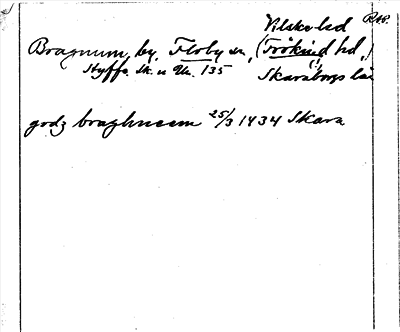 Vilske hd RAP.
Bragnum, by, Floby sn, (Frökind hd,)
(!)
Styffe Sk. u Un. 135 Skaraborgs län
godz braghnem 25/3 1434 Skara